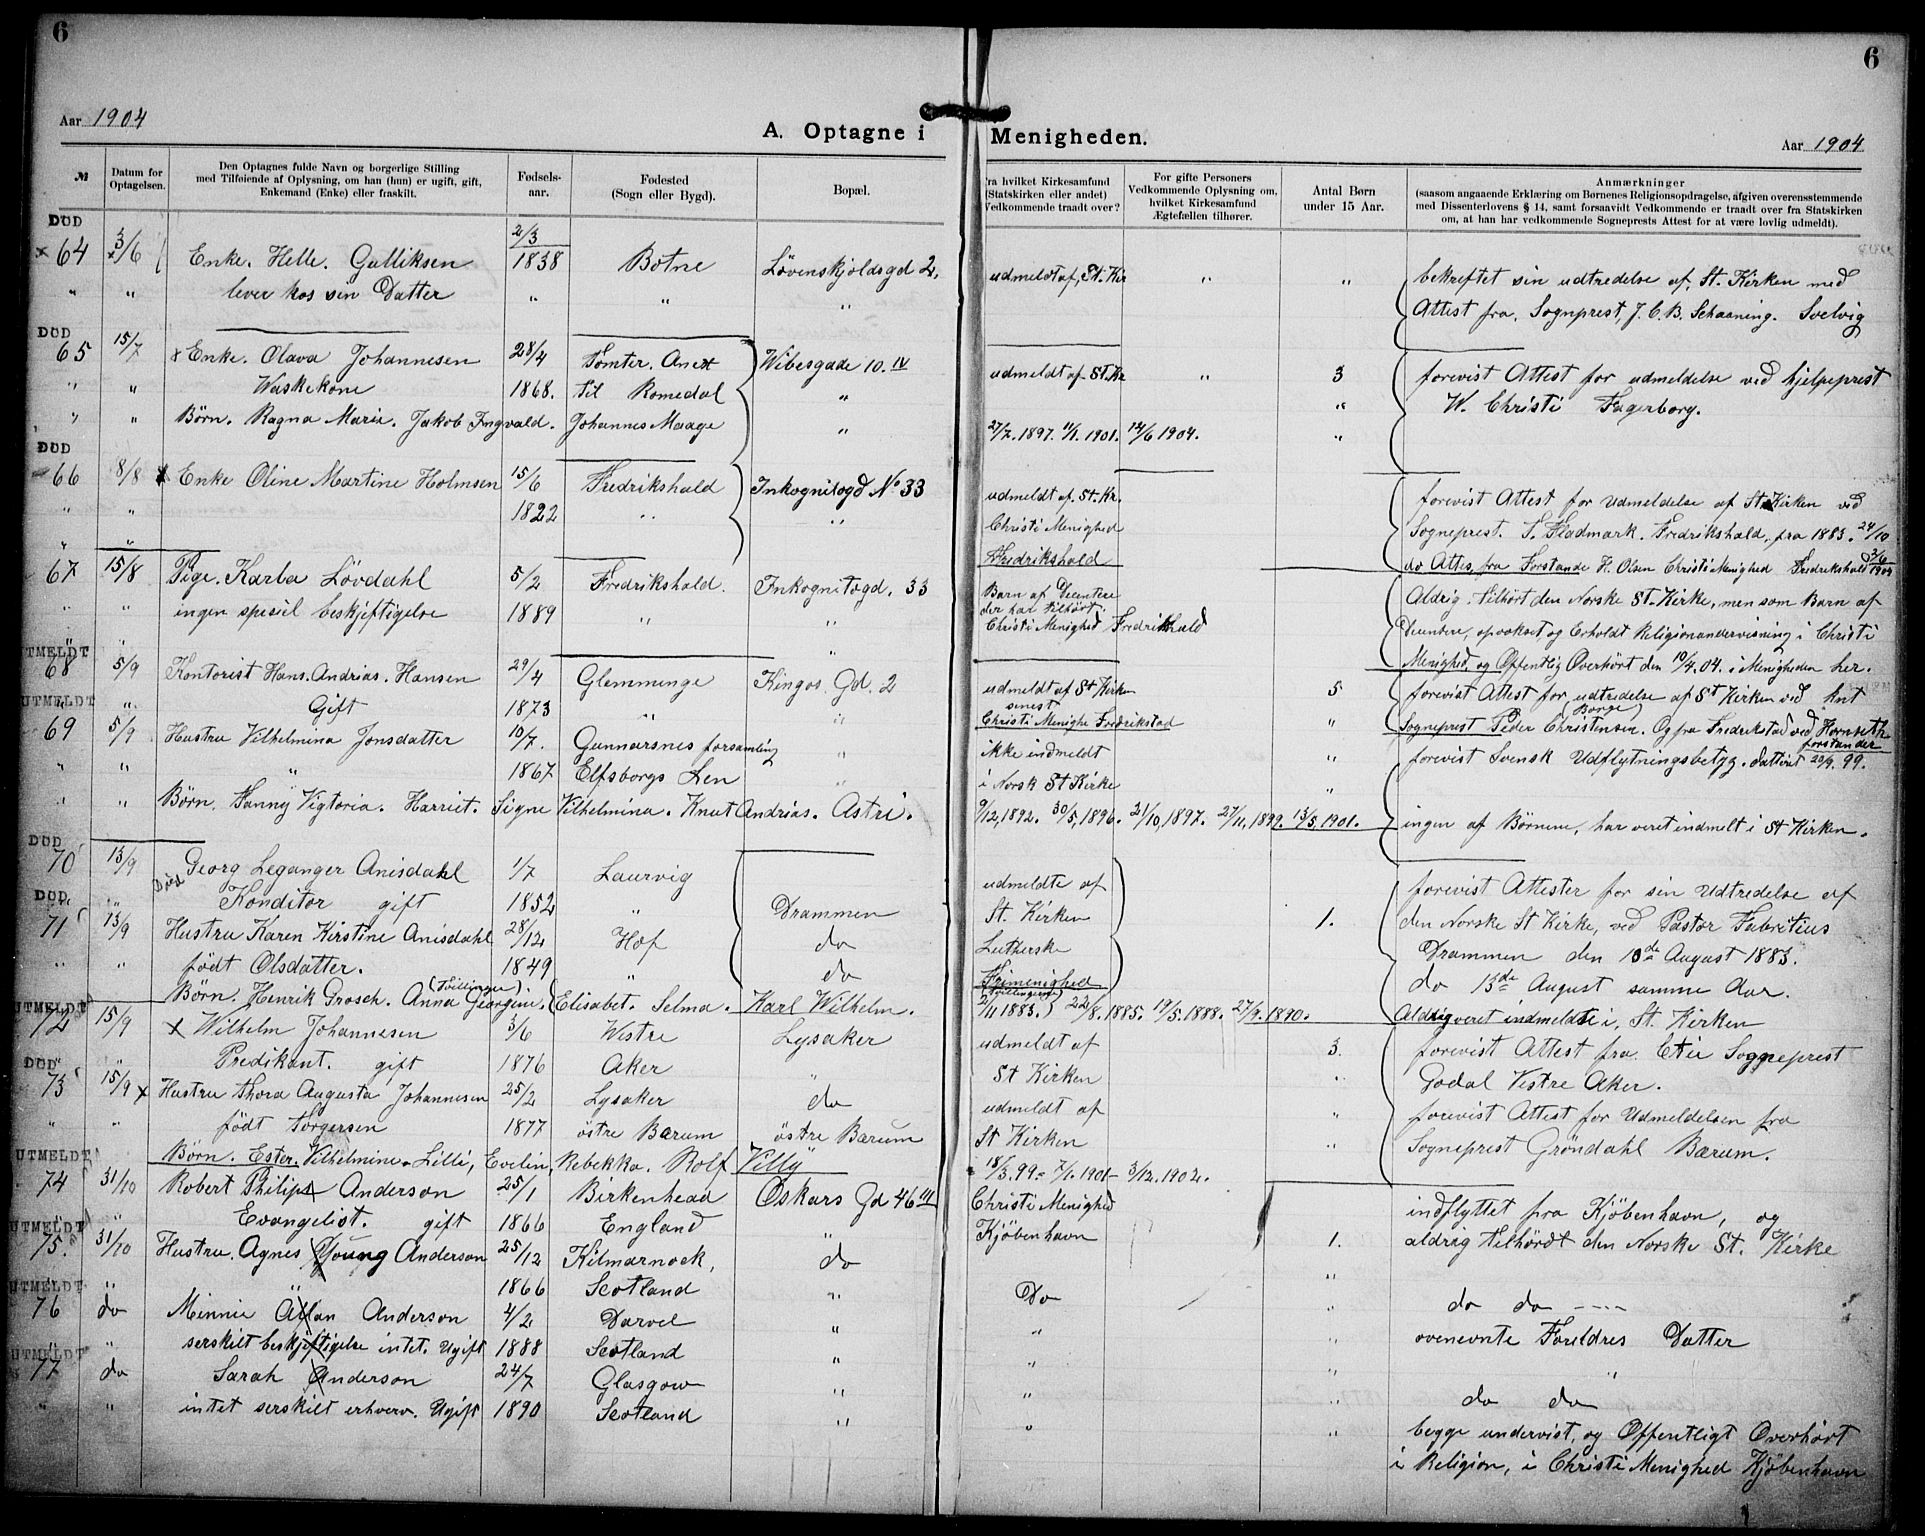 6
6
Aar 1904
A. Optagne i Menigheden.
Aar 1904
№
Datum for Optagelsen.
Den Optagnes fulde Navn og borgerlige Stilling
med Tilføiende af Oplysning, om han (hun) er ugift, gift,
Enkemand (Enke) eller fraskilt.
Fødselsaar.
Fødested
(Sogn eller Bygd).
Bopæl.
Fra hvilket Kirkesamfund
(Statskirken eller andet)
Vedkommende traadt over?
For gifte Personers
Vedkommende Oplysning om,
hvilket Kirkesamfund
Ægtefællen tilhører.
Antal Børn
under 15 Aar.
Anmærkninger
(saasom angaaende Erklæring om Børnenes Religionsopdragelse, afgiven overensstemmende
med Dissenterlovens § 14, samt forsaavidt Vedkommende er traadt over fra Statskirken
om, at han har vedkommende Sogneprests Attest for at være lovlig udmeldt).
DØD
2/3
x 64 3/6 Enke. Helle. Gulliksen 1838 Botne Løvenskjoldsgd 2. udmeldt af, St. Kir " " bekreftet sin udtredelse af, St. Kirken med
" " lever hos sin Datter " " " Attest fra, Sognprest, J. C. B. Schaaning. Svelvig
DØD
65 15/7 x Enke. Olava Johannesen 28/4 Tomter. Anext Wibesgade 10. IV udmeldt af St. Kr " 3 forevist Attest for udmeldelse ved hjelpeprest
" " Waskekone 1868. til Romedal " " W. Christi Fagerborg.
" " Børn. Ragna Marie. Jakob Ingvald. Johannes Maage " 27/7. 1897. 11/1. 1901. 14/6 1904. "
DØD
66 8/8 x Enke Oline Martine Holmsen 15/6 Fredrikshald Inkognitogd No 33 udmeldt af. St. Kr. forevist Attest for Udmeldelse af St. Kirken ved
" " 1822 " " Christi Menighed Sogneprest. S. Fladmark. Fredrikshald, fra 1883. 24/10
" " Fredrikshald do Attes, fra Forstande H. Olsen Christi Menighed Fredrikshald 3/6 1904
67 15/8 Pige. Karla Løvdahl 5/2 Fredrikshald. Inkognitogd. 33 Barn af Disentere Aldrig. tilhørt den Norske St. Kirke, men som Barn af
" " ingen spesiel beskjeftigelse 1889 " " der har tilhørt.
Christi Menighed Fredrikshald Disentere, opvokset og Erholdt Religionsundervisning i Christi
" " " Menighed, og Offentlig Overhørt den 10/4. 04. i Menigheden her.
UTMELDT
68 5/9 Kontorist Hans. Andrias. Hansen 29/4 Glemminge Kingos. Gd. 2 udmeldt af St Kirken 5 forevist Attest for udtredelse af St Kirken ved
UTMELDT
" " Gift 1873 " " senest
Christi Menighe Fredrikstad " Sogneprest Peder (Borge) Christensen. Og fra Fredrikstad ved Hornseth
forstander
69 5/9 Hustru Vilhelmina Jonsdatter 10/7. Gunnarsnes forsamling " ikke indmeldt " forevist Svensk Udflytningsbetyg. datteret 20/9. 99.
" " " 1867 Elfsborgs Len " i Norsk St Kirke "
" " Børn. Fanny Vigtoria. Harriet. Signe Vilhelmina. Knut Andrias. Astri. 9/12, 1892. 30/5, 1896. 21/10, 1897. 27/11, 1899. 13/5, 1901. ingen af Børnene, har veret indmelt i St Kirken.
DØD
70 13/9 Georg Leganger Anisdahl 1/7 Laurvig udmeldte af forevist Attester for sin Udtredelse af
DØD
" " Død Konditor gift 1852 " Drammen St. Kirken 1. den Norske St Kirke, ved Pastor Fabritius
71 13/9 Hustru Karen Kirstine Anisdahl 28/12 Hof do Lutherske Drammen den 10de August 1883.
" " født Olsdatter. 1849 " do Frimenighed do 13de August samme Aar.
Børn. Henrik Grosch. Anna Georgine. (Tvillinger) Elisabet. Selma. Karl Wilhelm. (Tvillinger) 2/11 1883. 22/8. 1885. 19/5. 1888. 27/9. 1890. Aldrig veret indmeldte i, St. Kirken
UTMELDT
72 15/9 x Wilhelm Johannesen 3/6 Westre Lysaker udmeldt af 3. forevist Attest fra. Sogneprest
" Predikant. gift 1876 Aker " St Kirken " Godal Vestre Aker.
DØD
73 15/9 x Hustru Thora Augusta Johannesen 25/2 Lysaker do udmeldt af " forevist Attest for Udmeldelsen fra
" " født Torgersen 1877 østre Bærum østre Bærum St Kirken " Sogneprest Grøndahl Bærum.
Børn. Ester. Vilhelmine. Lilli, Evelin, Rebekka. Rolf Villy 18/3. 99. 7/1. 1901 3/12. 1902.
UTMELDT
74 31/10 Robert Philips Anderson 25/1 Birkenhead Oskars Gd 46 III Christi Menighed indflyttet fra Kjøbenhavn, og
" " Evangelist. gift 1866 England " Kjøbenhavn
UTMELDT
75. 31/10 Hustru. Agnes Young Anderson 25/12 Kilmarnock, do 1. aldrig tilhørdt den Norske St. Kirke
" " 1866 Scotland " "
UTMELDT
76 do Minnie Allan Anderson 4/2 Darvel " Do " do do ----
" " serskilt beskjeftigelse intet. Ugift 1888 Scotland " " ovenevnte Foreldres Datter
UTMELDT
77 do Sarah Anderson 24/7 Glasgow " " " do do
" " intet serskilt erhverv. Ugift 1890 Scotland " " " begge undervist, og Offentligt Overhørt
i Religion, i Christi Menighed Kjøbenhavn